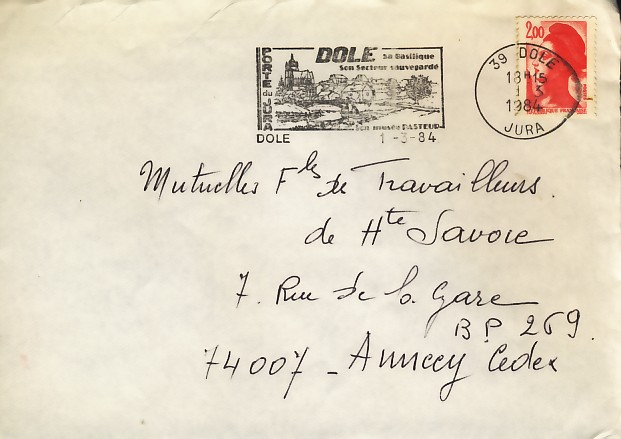 2,00
RÉPUBLIQUE FRANÇAISE
39 DOLE
18H15
1 3
1984
JURA
PORTE du JURA
DOLE Sa Basilique
Son Secteur sauvegardé
Son musée PASTEUR
DOLE 1 -3-84
Mutuelles Fles de Travailleurs
de Hte Savoie
7. Rue de la Gare
B.P. 269.
74007 - Annecy Cedex